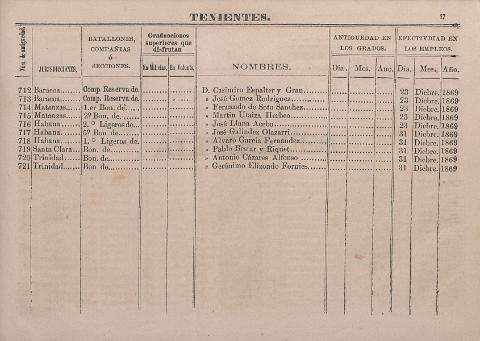 TENIENTES.
17
Núm. de antigüedad.
JURISDICCIONES.
BATALLONES,
COMPAÑIAS
ó
SECCIONES.
Graduaciones
superiores que
disfrutan
En Milicias.
En Volunts.
NOMBRES.
ANTIGUEDAD EN
LOS GRADOS.
Dia. Mes. Año.
EFECTIVIDAD EN
LOS EMPLEOS.
Dia. Mes. Año.
712 Baracoa Comp. Reserva de D. Casimiro Espalter y Grau 23 Dicbre. 1869
713 Baracoa Comp. Reserva de » José Gomez Rodriguez 23 Dicbre. 1869
714 Matanzas 1.er Bon. de » Fernando de Soto Sanchez 23 Dicbre. 1869
715 Matanzas 2º Bon. de » Martin Utaiza 23 Dicbre. 1869
716 Habana 2.º Ligeros de » José Llana Acebo 23 Dicbre. 1869
717 Habana 5º Bon. de » José Galindez Olazarri 31 Dicbre. 1869
718 Habana 1.º Ligeros de » Alvaro García Fernandez 31 Dicbre. 1869
719 Santa Clara Bon. de » Pablo Biscar y Riquet 31 Dicbre. 1869
720 Trinidad Bon. de » Antonio Cázares Alfonso 31 Dicbre. 1869
721 Trinidad Bon. de » Gerónimo Elizondo Fornies 31 Dicbre. 1869